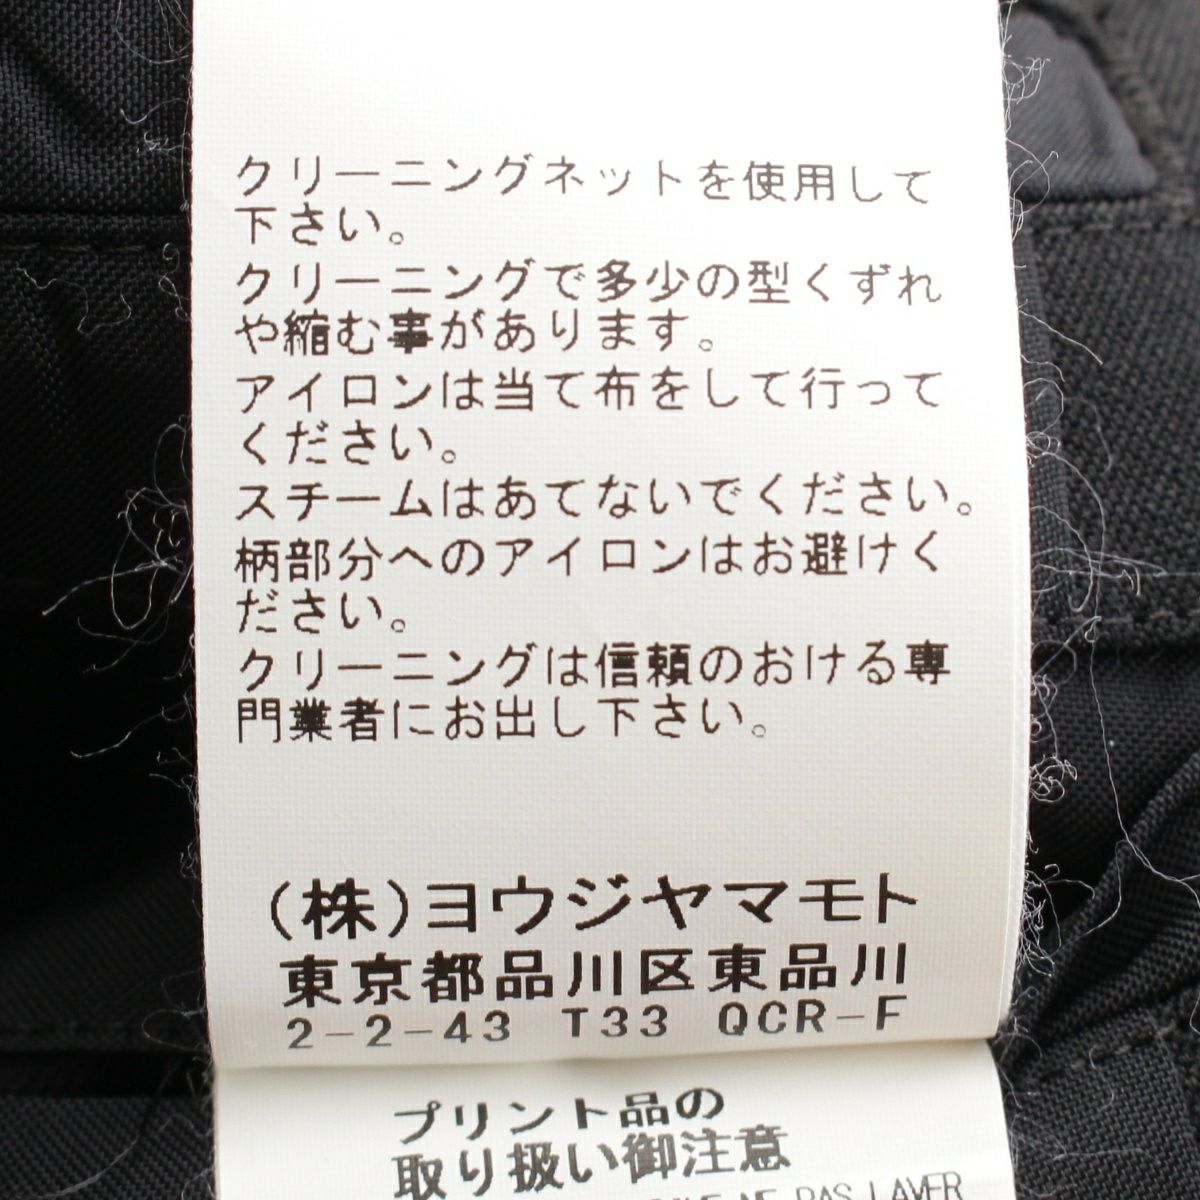 クリーニングネットを使用して
下さい。
クリーニングで多少の型くずれ
や縮む事があります。
アイロンは当て布をして行って
ください。
スチームはあてないでください。
柄部分へのアイロンはお避けく
ださい。
クリーニングは信頼のおける専
門業者にお出し下さい。
(株)ヨウジヤマモト
東京都品川区東品川
2-2-43 T33 QCR-F
プリント品の
取り扱い御注意
NE PAS LAVER